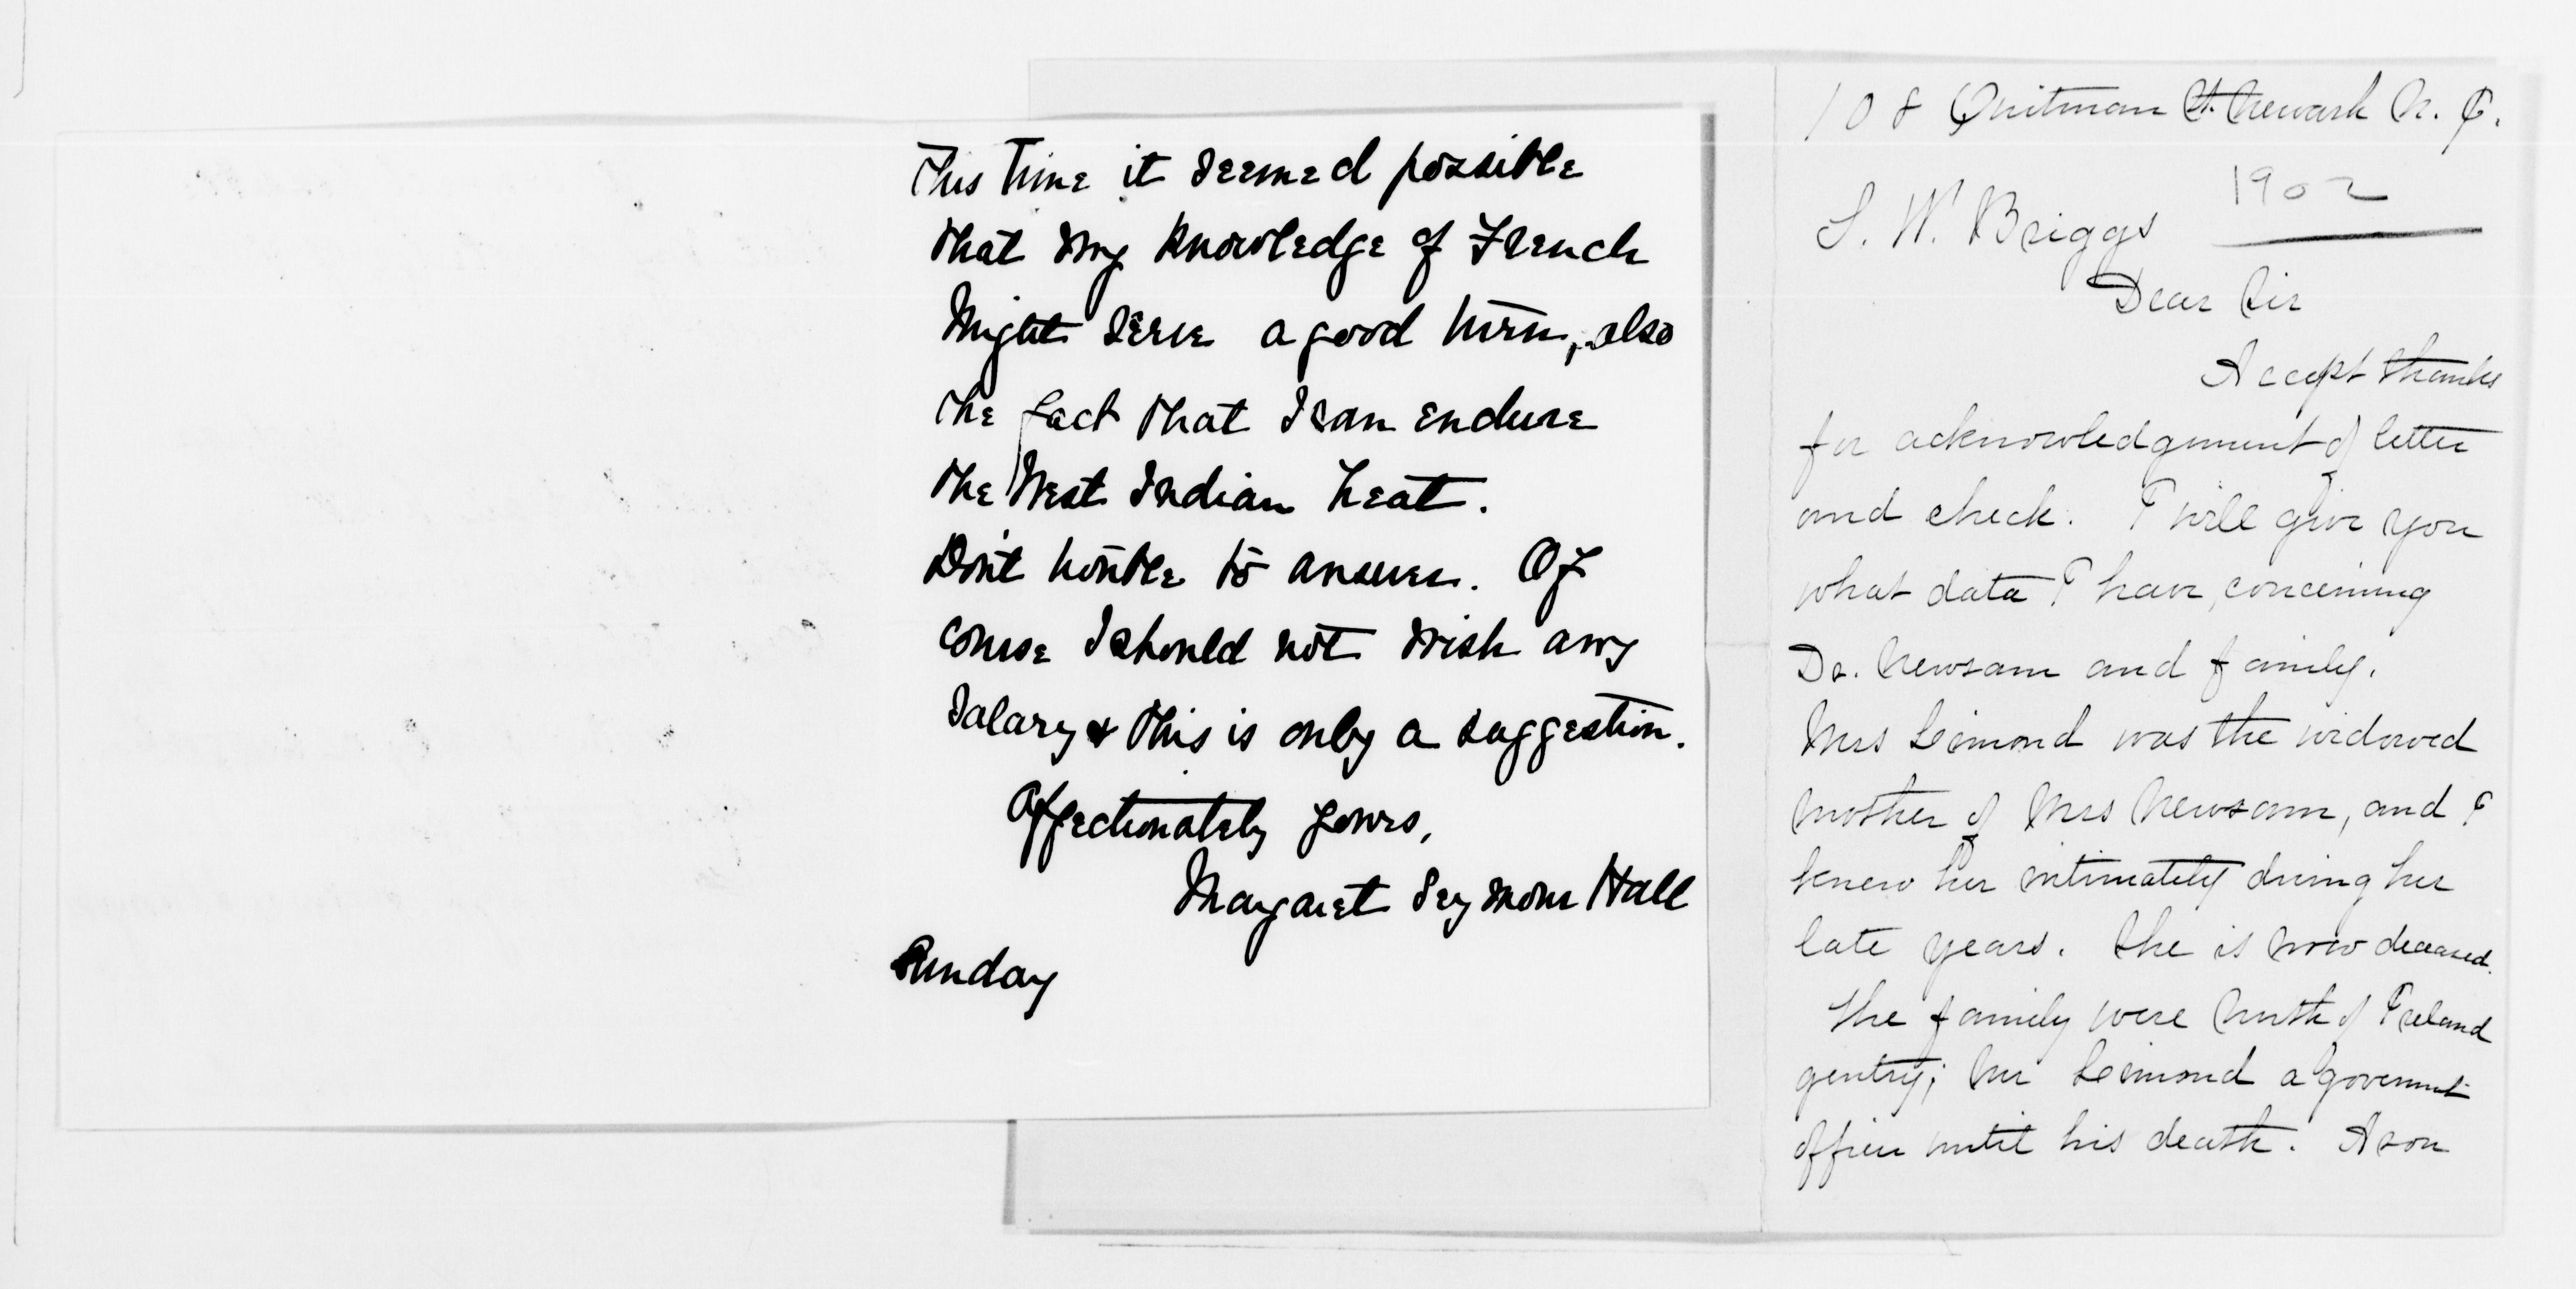 This Time it seemed possible
that my knowledge of French
might serve a good turn, also
the fact that I can endure
the West Indian heat.
Don't trouble to answer. Of
course I should not wish any
salary & this is only a suggestion.
Affectionately yours,
Margaret Seymour Hall
Sunday
108 Quitman St. Newark N. J.
1902
S. W. Briggs
Dear Sir
Accept thanks
for acknowledgment of letter
and check. I will give you
what data I have, concerning
Dr. Newsam and family.
Mrs Simond was the widowed
mother of Mrs Newsam, and I
knew her intimately during her
late years. She is now deceased.
The family were North of Ireland
gentry; Mr Simond a government
officer until his death. A son